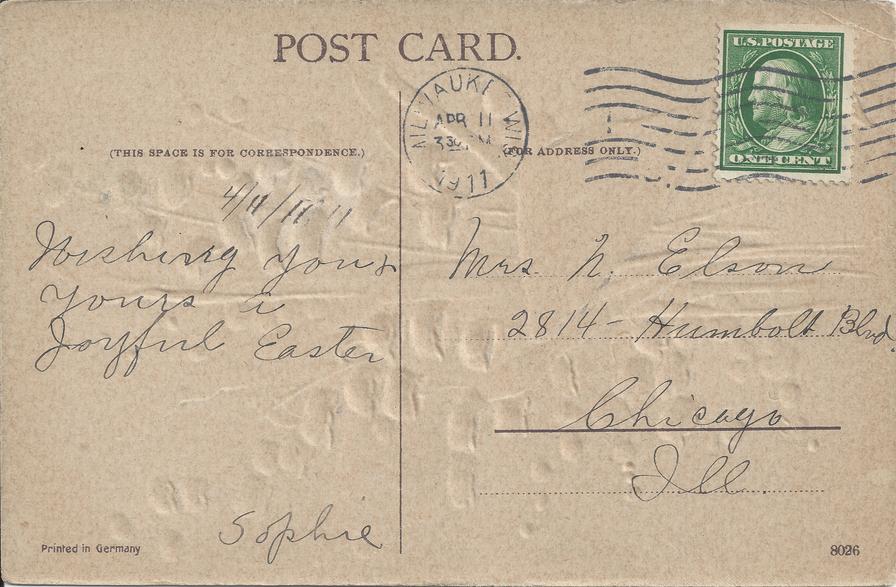 POST CARD.
U.S. POSTAGE
ONE CENT
MILWAUKEE WIS
APR 11
330 PM
1911
(THIS SPACE IS FOR CORRESPONDENCE.)
(FOR ADDRESS ONLY.)
4/11/11
Wishing you &
yours a
Joyful Easter
Sophie
Mrs. N. Elson
2814 - Humbolt Blvd.
Chicago
Ill
Printed in Germany
8026